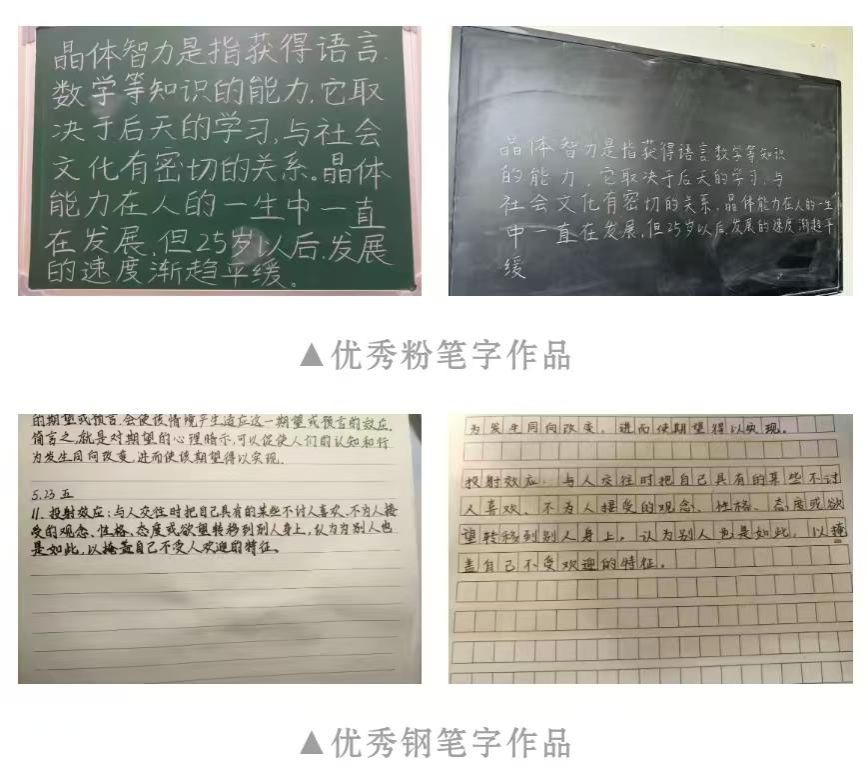 晶体智力是指获得语言.
数学等知识的能力.它取
决于后天的学习,与社会
文化有密切的关系。晶体
能力在人的一生中一直
在发展,但25岁以后,发展
的速度渐趋平缓。
晶体智力是指获得语言数学等知识
的能力.它取决于后天的学习,与
社会文化有密切的关系.晶体能力在人的一生
中一直在发展,但25岁以后,发展的速度渐趋平
缓
▲优秀粉笔字作品
的期望或预言,会使该情境产生适应这一期望或预言的效应.
简言之,就是对期望的心理暗示,可以促使人们的认知和行
为发生同向改变,进而使该期望得以实现.
5.23 五
11.投射效应:与人交往时把自己具有的某些不讨人喜欢、不为人接
受的观念、性格、态度或欲望转移到别人身上,认为别人也
是如此,以掩盖自己不受人欢迎的特征。
为发生同向改变,进而使期望得以实现。
投射效应:与人交往时把自己具有的某些不讨
人喜欢、不为人接受的观念、性格、态度或欲
望转移到别人身上,认为别人也是如此,以掩
盖自己不受欢迎的特征。
▲优秀钢笔字作品